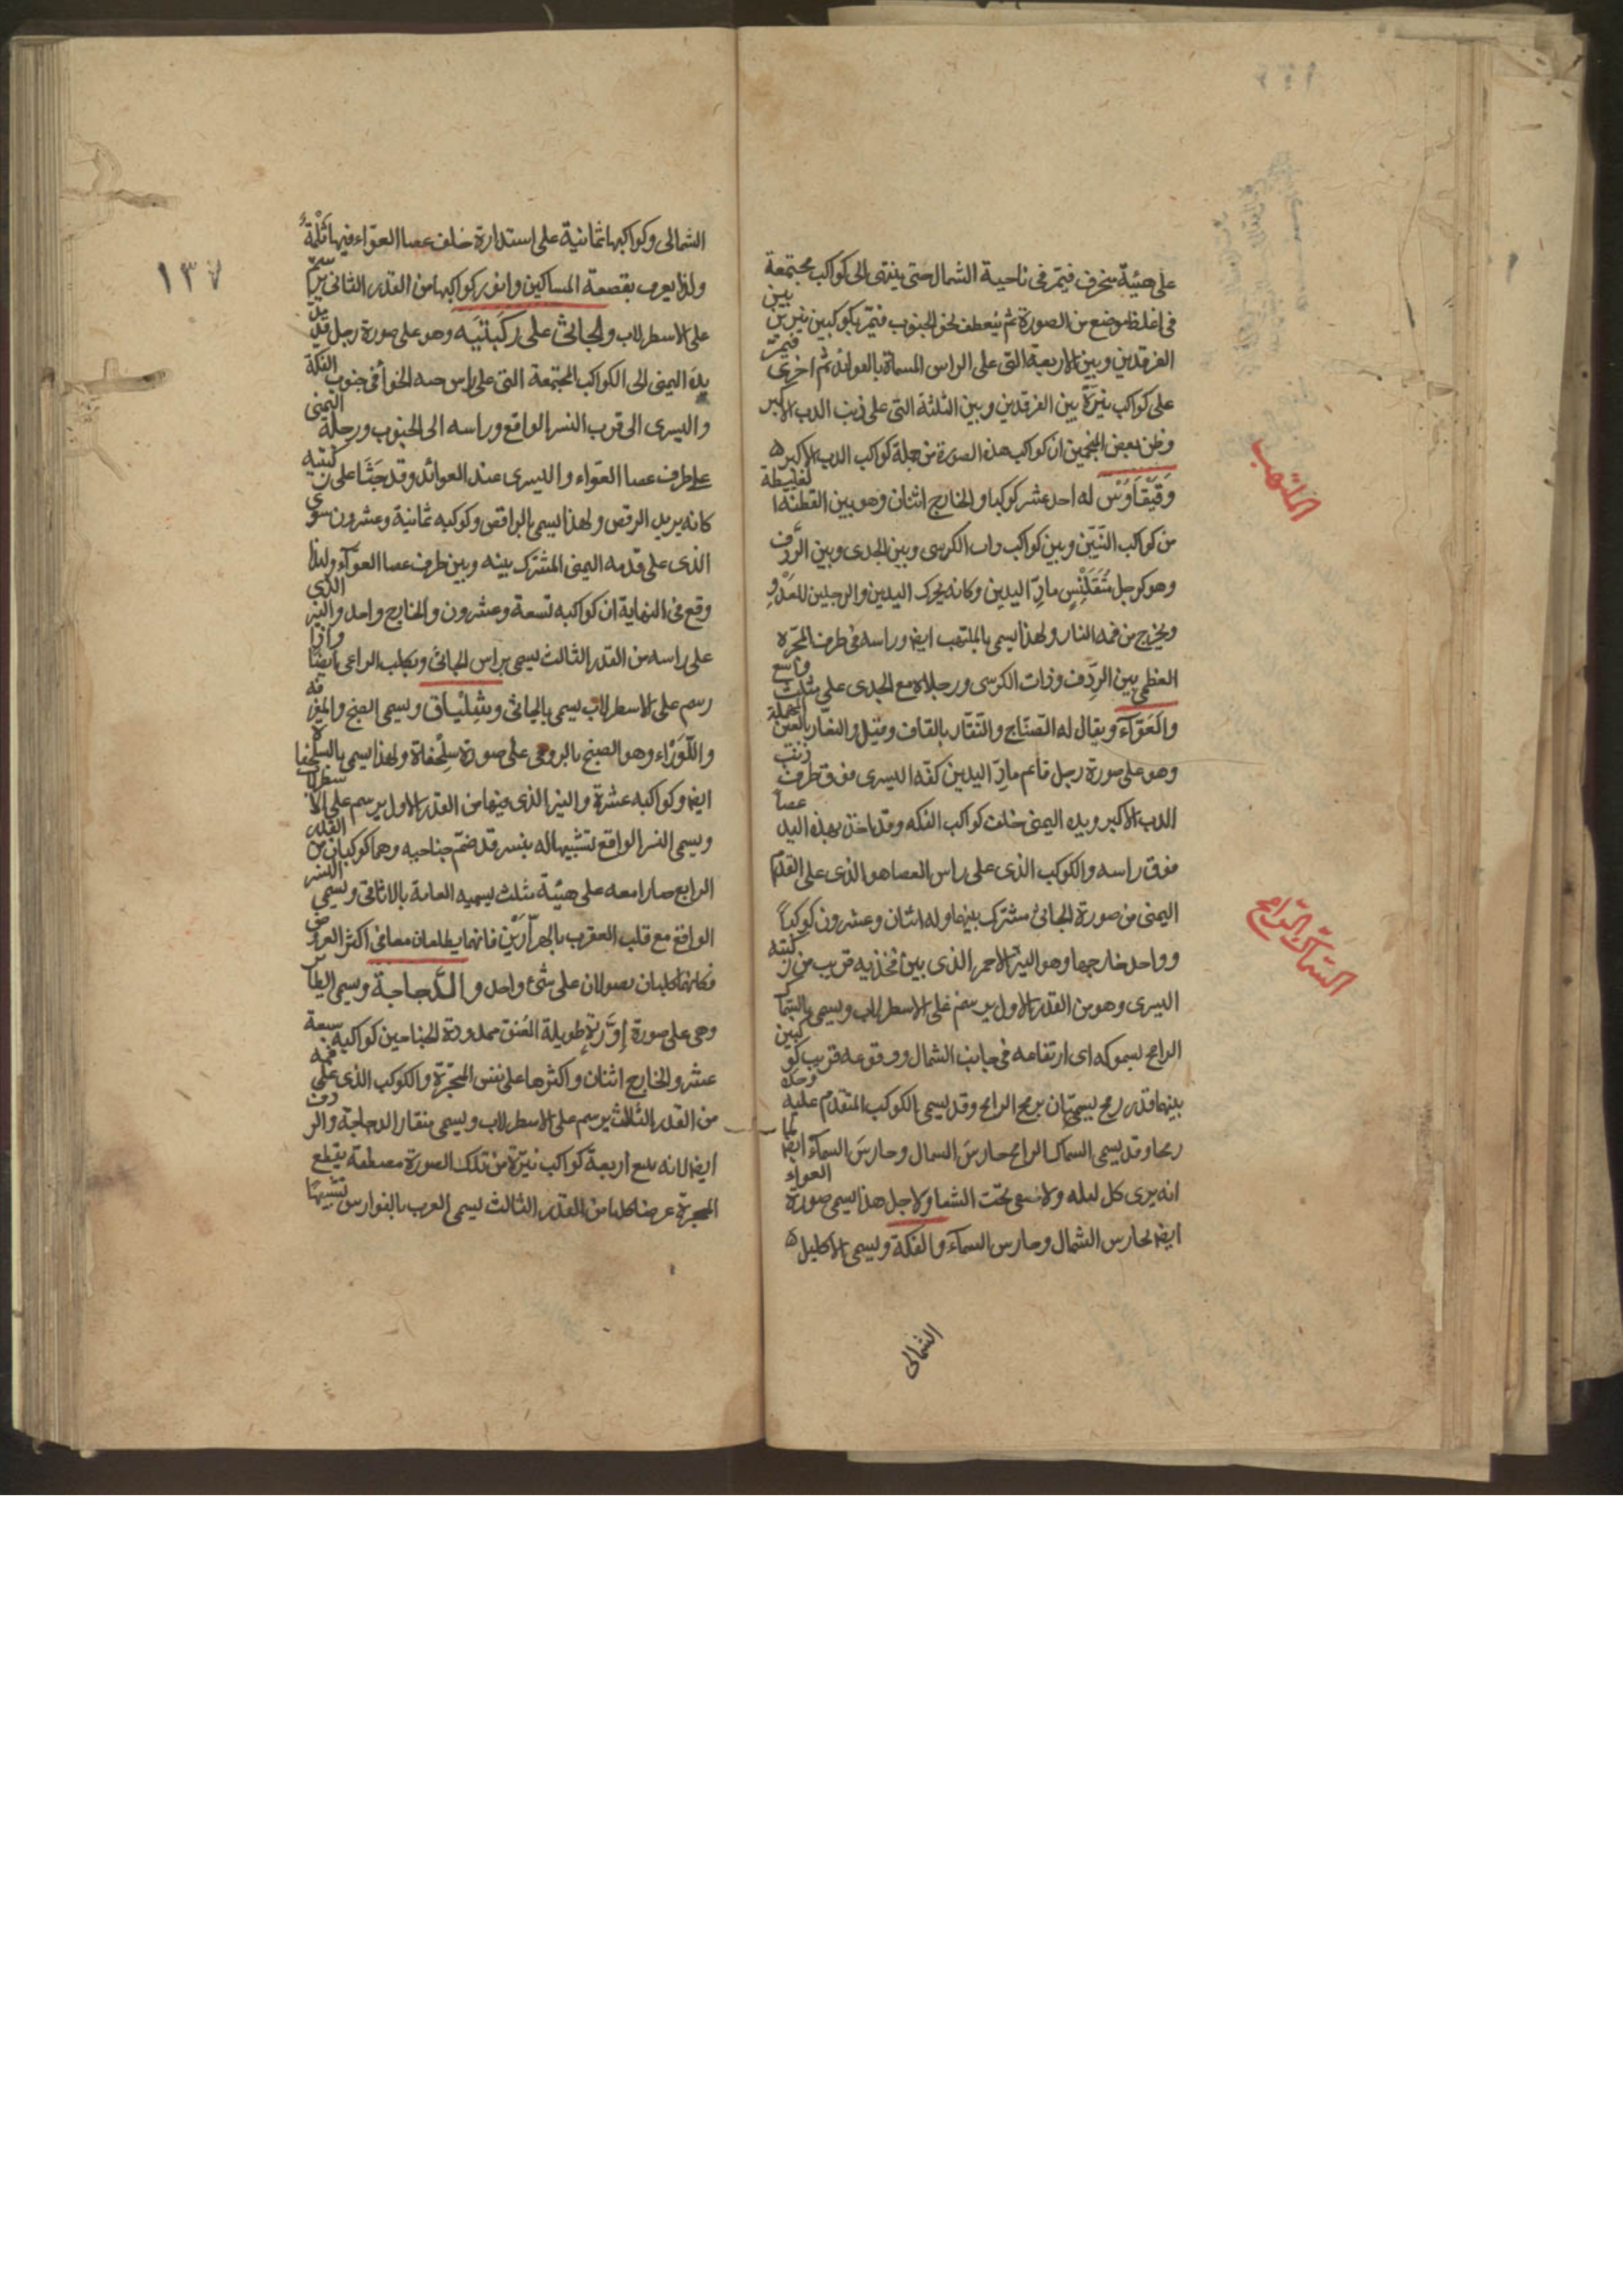 على هيئة منحرف فيتمر في ناحية الشمال حتى ينتهى الى كواكب مجتمعة
في اغلظ موضع من الصورة ثم ينعطف نحو الجنوب فيتمر بكوكبين نيرين بين
الفرقدين وبين الاربعة التى على الراس المسماة بالعوائذ ثم اخرى فيمر
على كواكب نيرة بين الفرقدين وبين الثلثة التى على ذنب الدب الاكبر
وظن بعض المنجمين ان كواكب هذه الصورة من جملة كواكب الدب الاكبر ه
وَقَيْقَاوَسْ له احد عشر كوكبا والخارج اثنان وهو بين القطنة الغليظة
من كواكب التنّين وبين كواكب ذات الكرسى وبين الجدى وبين الرِّدف
وهو كرجل مُتَقَلْنِسٍ مادّ اليدين وكانه يحرك اليدين والرجلين للعَدْوِ
ويخرج من فمه النار ولهذا يسمى بالملتهب ايضا وراسه فى طرف المجرّه
العظمى بين الرِّدف وذات الكرسى ورجلاه مع الجدى على مثلث واسع
والعَوّآء ويقال له الصّنّاج والنّقّار بالقاف وقيل والنعّار بالعين المهملة
وهو على صورة رجل قائم مادّ اليدين كفّه اليسرى فوق طرف ذنب
الدب الاكبر ويده اليمنى خلف كواكب الفكه وقد اخذ بهذه اليد عصا
فوق راسه والكوكب الذى على راس العصا هو الذى على القدم
اليمنى من صورة الجاثى مشترك بينهما وله اثنان وعشرون كوكباً
وواحد خارجها وهو النيّر الاحمر الذى بين فخذيه قريب من ركبته
اليسرى وهو من القدر الاول يرسم على الاسطرلاب ويسمى بالسّماك
الرامح لسموكه اى ارتفاعه فى جانب الشمال ووقوعه قريب كوكبين
بينهما قدر رمح يسميان برمح الرامح وقد يسمى الكوكب المتقدم عليه وحده
رمحا وقد يسمى السماك الرامح حارسَ السمال وحارسَ السمآء ايضا لما
انه يرى كل ليله ولا تحت الشعا ولاجل هذا يسمى صورة العواء
ايضا لحارس الشمال وحارس السمآء والفكة ويسمى الاكليل ه
الشمالى
الملتهب
السّماك الرّامح
١٣٧
الشمالى وكواكبها ثمانية على استدارة خلف عصا العوّاء فيها ثَلْمَةٌ
ولذا يعرف بقصعة المساكين وانور كواكبها من القدر الثانى يرسم
على الاسطرلاب والجاثى على ركبتَيه وهو على صورة رجل قد مدّ
يده اليمنى الى الكواكب المجتمعة التى على راس حيه الحوا فى جنوب الفكة
واليسرى الى قرب النسر الواقع وراسه الى الجنوب ورجله اليمنى
على طرف عصا العوّاء واليسرى عند العوائذ وقد جَثَا على ركبتيه
كانه يريد الرقص ولهذا يسمى بالراقص وكوكبه ثمانية وعشرون سوى
الذى على قدمه اليمنى المشترك بينه وبين طرف عصا العوّآء ولهذا
وقع فى النهاية ان كواكبه تسعة وعشرون والخارج واحد والنير الذى
على راسه من القدر الثالث يسمى براس الجاثى وبكلب الراعى ايضًا واذا
رسم على الاسطرلاب يسمى بالجاثى وشِلْيَاق ويسمى الصنج والمعزفة
واللَّوَزاء وهو الصنج بالرومى على صورة سلحفاة ولهذا يسمى بالسلحفاة
ايضا وكواكبه عشرة والنير الذى فيها من القدر الاول يرسم على الاسطرلاب
ويسمى النسر الواقع تشبيها له بنسر قد ضم جناحيه وهما كوكبان من القدر
الرابع صارا معه على هيئة مثلث يسميه العامة بالاثافى ويسمى النسر
الواقع مع قلب العقرب بالهرّارَيْن فانهما يطلعان معا فى اكثر العروض
فكانهما كلبان يصولان على شئ واحد والدّجاجة ويسمى الطائر
وهى على صورة إوَزّةٍ طويلة العُنق ممدودة الجناحين كواكبه سبعة
عشر والخارج اثنان واكثرها على نفس المجرّة والكوكب الذى على فمه
من القدر الثالث يرسم على الاسطرلاب ويسمى منقار الدجاجة والردف
ايضا لانه مع اربعة كواكب نيّرة من تلك الصورة مصطفة يقطع
المجرّة عرضا كلها من القدر الثالث يسمى العرب بالفوارس تشبيهًا